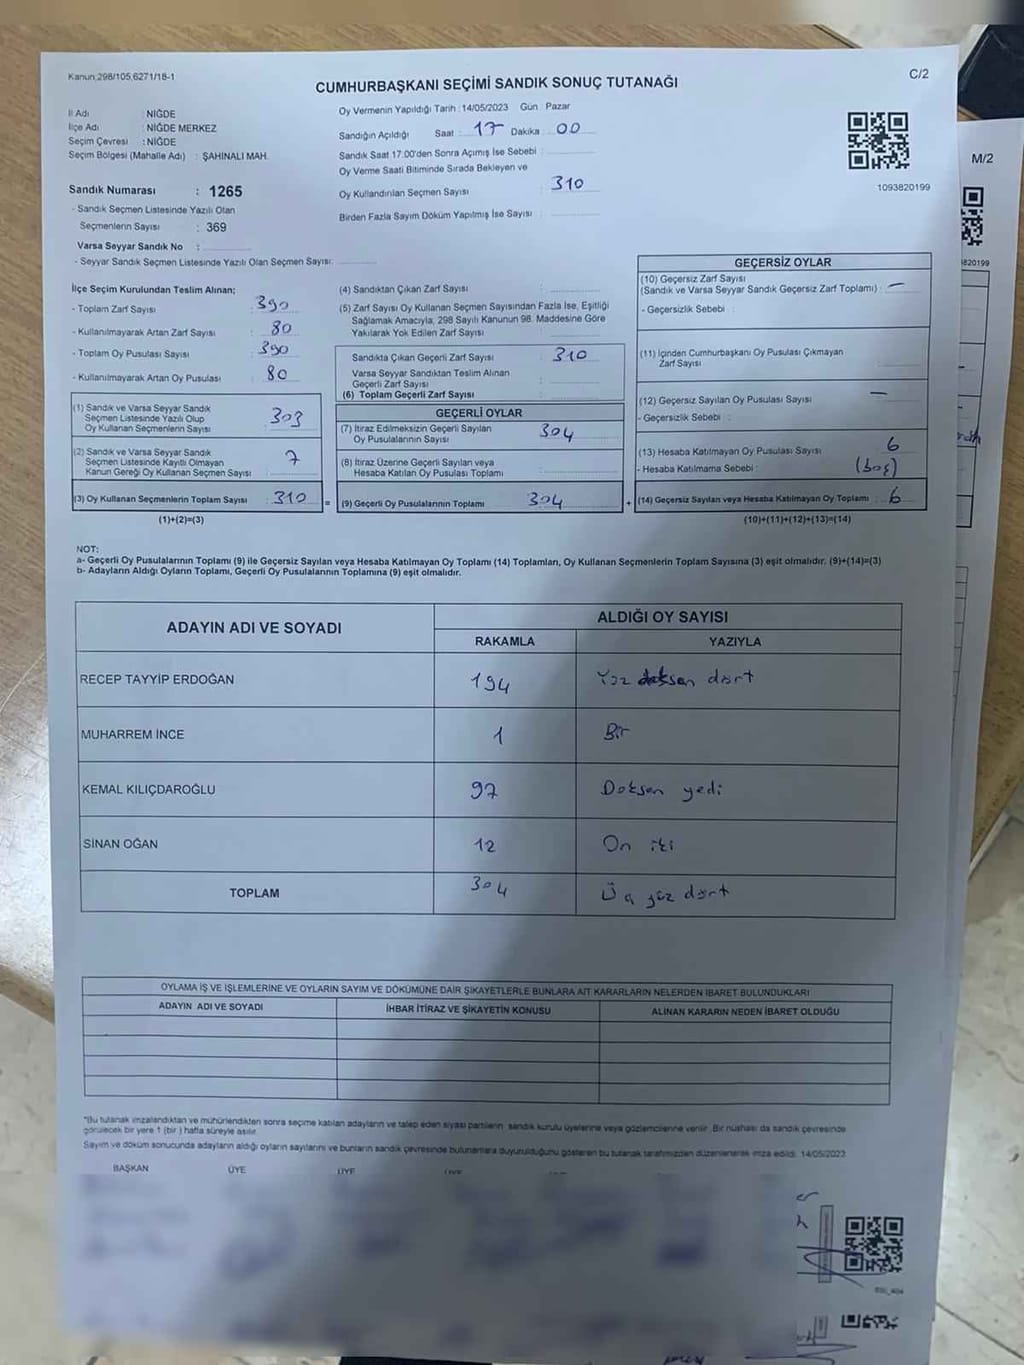 Kanun:298/105,6271/18-1
C/2
CUMHURBAŞKANI SEÇİMİ SANDIK SONUÇ TUTANAĞI
İl Adı : NİĞDE
İlçe Adı : NİĞDE MERKEZ
Seçim Çevresi : NİĞDE
Seçim Bölgesi (Mahalle Adı) : ŞAHİNALİ MAH.
Sandık Numarası : 1265
- Sandık Seçmen Listesinde Yazılı Olan
Seçmenlerin Sayısı : 369
Varsa Seyyar Sandık No :
- Seyyar Sandık Seçmen Listesinde Yazılı Olan Seçmen Sayısı:
Oy Vermenin Yapıldığı Tarih : 14/05/2023 Gün : Pazar
Sandığın Açıldığı Saat : 17 Dakika : 00
Sandık Saat 17:00'den Sonra Açımış İse Sebebi :
Oy Verme Saati Bitiminde Sırada Bekleyen ve
Oy Kullandırılan Seçmen Sayısı : 310
Birden Fazla Sayım Döküm Yapılmış İse Sayısı :
1093820199
M/2
820199
İlçe Seçim Kurulundan Teslim Alınan;
- Toplam Zarf Sayısı : 390
- Kullanılmayarak Artan Zarf Sayısı : 80
- Toplam Oy Pusulası Sayısı : 390
- Kullanılmayarak Artan Oy Pusulası : 80
(1) Sandık ve Varsa Seyyar Sandık
Seçmen Listesinde Yazılı Olup
Oy Kullanan Seçmenlerin Sayısı : 303
(2) Sandık ve Varsa Seyyar Sandık
Seçmen Listesinde Kayıtlı Olmayan
Kanun Gereği Oy Kullanan Seçmen Sayısı : 7
(3) Oy Kullanan Seçmenlerin Toplam Sayısı : 310 =
(1)+(2)=(3)
(4) Sandıktan Çıkan Zarf Sayısı :
(5) Zarf Sayısı Oy Kullanan Seçmen Sayısından Fazla İse, Eşitliği
Sağlamak Amacıyla, 298 Sayılı Kanunun 98. Maddesine Göre
Yakılarak Yok Edilen Zarf Sayısı :
Sandıkta Çıkan Geçerli Zarf Sayısı : 310
Varsa Seyyar Sandıktan Teslim Alınan
Geçerli Zarf Sayısı :
(6) Toplam Geçerli Zarf Sayısı :
GEÇERLİ OYLAR
(7) İtiraz Edilmeksizin Geçerli Sayılan
Oy Pusulalarının Sayısı : 304
(8) İtiraz Üzerine Geçerli Sayılan veya
Hesaba Katılan Oy Pusulası Toplamı :
(9) Geçerli Oy Pusulalarının Toplamı : 304 +
GEÇERSİZ OYLAR
(10) Geçersiz Zarf Sayısı
(Sandık ve Varsa Seyyar Sandık Geçersiz Zarf Toplamı) : —
- Geçersizlik Sebebi :
(11) İçinden Cumhurbaşkanı Oy Pusulası Çıkmayan
Zarf Sayısı :
(12) Geçersiz Sayılan Oy Pusulası Sayısı : —
- Geçersizlik Sebebi :
(13) Hesaba Katılmayan Oy Pusulası Sayısı : 6
- Hesaba Katılmama Sebebi : (boş)
(14) Geçersiz Sayılan veya Hesaba Katılmayan Oy Toplamı : 6
(10)+(11)+(12)+(13)=(14)
NOT:
a- Geçerli Oy Pusulalarının Toplamı (9) ile Geçersiz Sayılan veya Hesaba Katılmayan Oy Toplamı (14) Toplamları, Oy Kullanan Seçmenlerin Toplam Sayısına (3) eşit olmalıdır. (9)+(14)=(3)
b- Adayların Aldığı Oyların Toplamı, Geçerli Oy Pusulalarının Toplamına (9) eşit olmalıdır.
ADAYIN ADI VE SOYADI
ALDIĞI OY SAYISI
RAKAMLA YAZIYLA
RECEP TAYYİP ERDOĞAN 194 Yüz doksan dört
MUHARREM İNCE 1 Bir
KEMAL KILIÇDAROĞLU 97 Doksan yedi
SİNAN OĞAN 12 On iki
TOPLAM 304 Üç yüz dört
OYLAMA İŞ VE İŞLEMLERİNE VE OYLARIN SAYIM VE DÖKÜMÜNE DAİR ŞİKAYETLERLE BUNLARA AİT KARARLARIN NELERDEN İBARET BULUNDUKLARI
ADAYIN ADI VE SOYADI İHBAR İTİRAZ VE ŞİKAYETİN KONUSU ALINAN KARARIN NEDEN İBARET OLDUĞU
*Bu tutanak imzalandıktan ve mühürlendikten sonra seçime katılan adayların ve talep eden siyasi partilerin sandık kurulu üyelerine veya gözlemcilerine verilir. Bir nüshası da sandık çevresinde
görülecek bir yere 1 (bir) hafta süreyle asılır.
Sayım ve döküm sonucunda adayların aldığı oyların sayılarını ve bunların sandık çevresinde bulunanlara duyurulduğunu gösteren bu tutanak tarafımızdan düzenlenerek imza edildi. 14/05/2023
BAŞKAN ÜYE ÜYE ÜYE